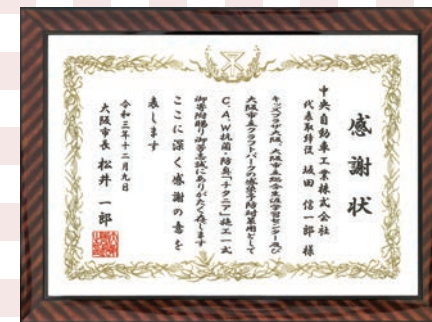 感謝状
中央自動車工業株式会社
代表取締役 坂田 信一郎 様
キッズプラザ大阪、大阪市立総合生涯学習センター及び
大阪市立クラフトパークの感染予防対策用として
C.A.W抗菌・防臭「チタニア」施工一式
御寄附賜り御芳志誠にありがたく存じます
ここに深く感謝の意を
表します
令和三年十二月九日
大阪市長 松井 一郎